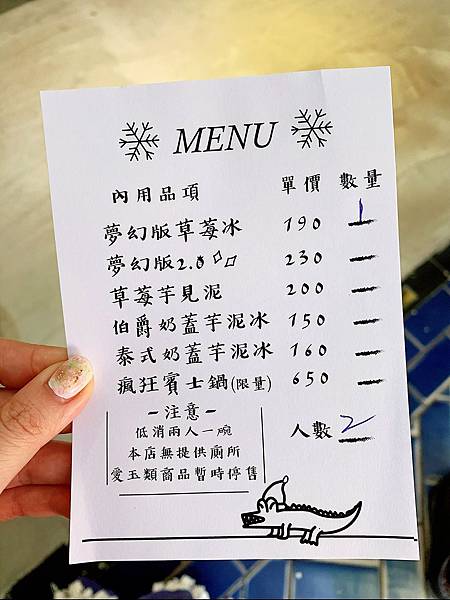 MENU
內用品項 單價 數量
夢幻版草莓冰 190 1
夢幻版2.0 230
草莓芋見泥 200
伯爵奶蓋芋泥冰 150
泰式奶蓋芋泥冰 160
瘋狂賓士鍋(限量) 650
-注意-
低消兩人一碗
本店無提供廁所
愛玉類商品暫時停售
人數 2